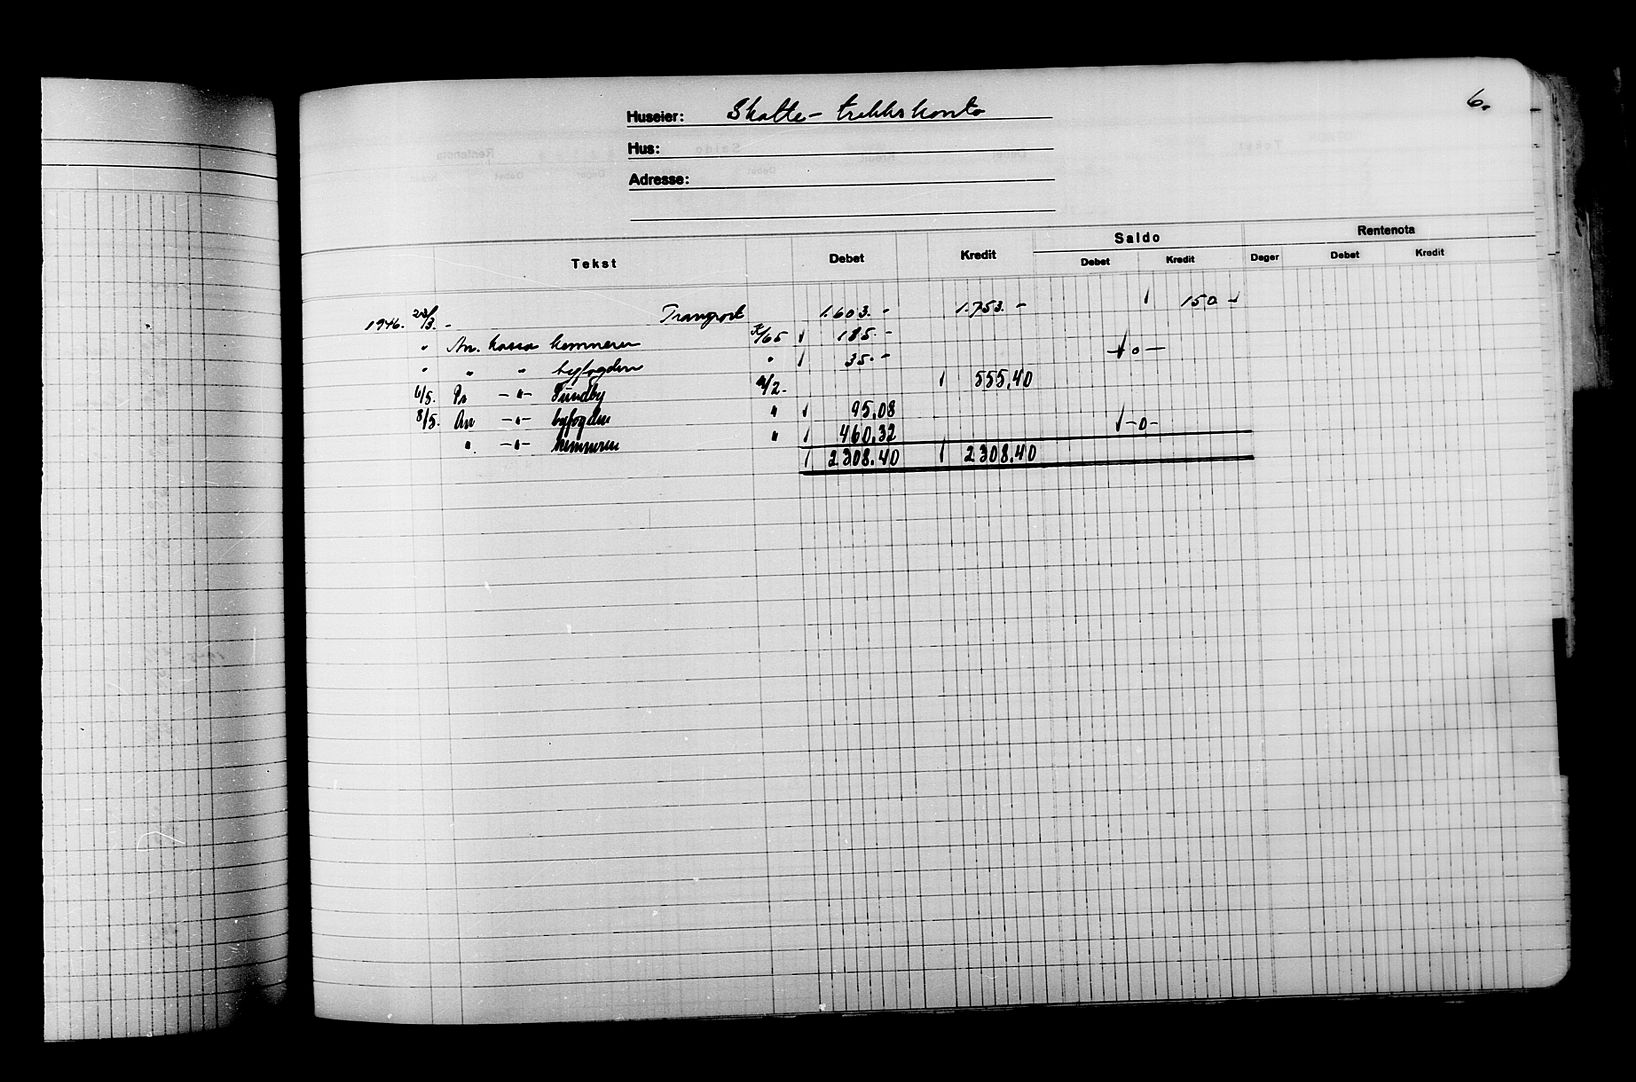 6.
Huseier: Skatte- trekkskonto
Hus:
Adresse:
Tekst Debet Kredit Saldo Debet Kredit Rentenota Dager Debet Kredit
1946. 23/3. - Transport 1.603.- 1.753.- 150 -
" An. kassa kemneren K/65 115.-
" " " byfogden " 35.- -0-
6/5. Pr -"- Sundby 2. 555,40
8/5. An -"- byfogden " 95,08
" -"- kemneren " 460,32 -0-
2308.40 2308.40